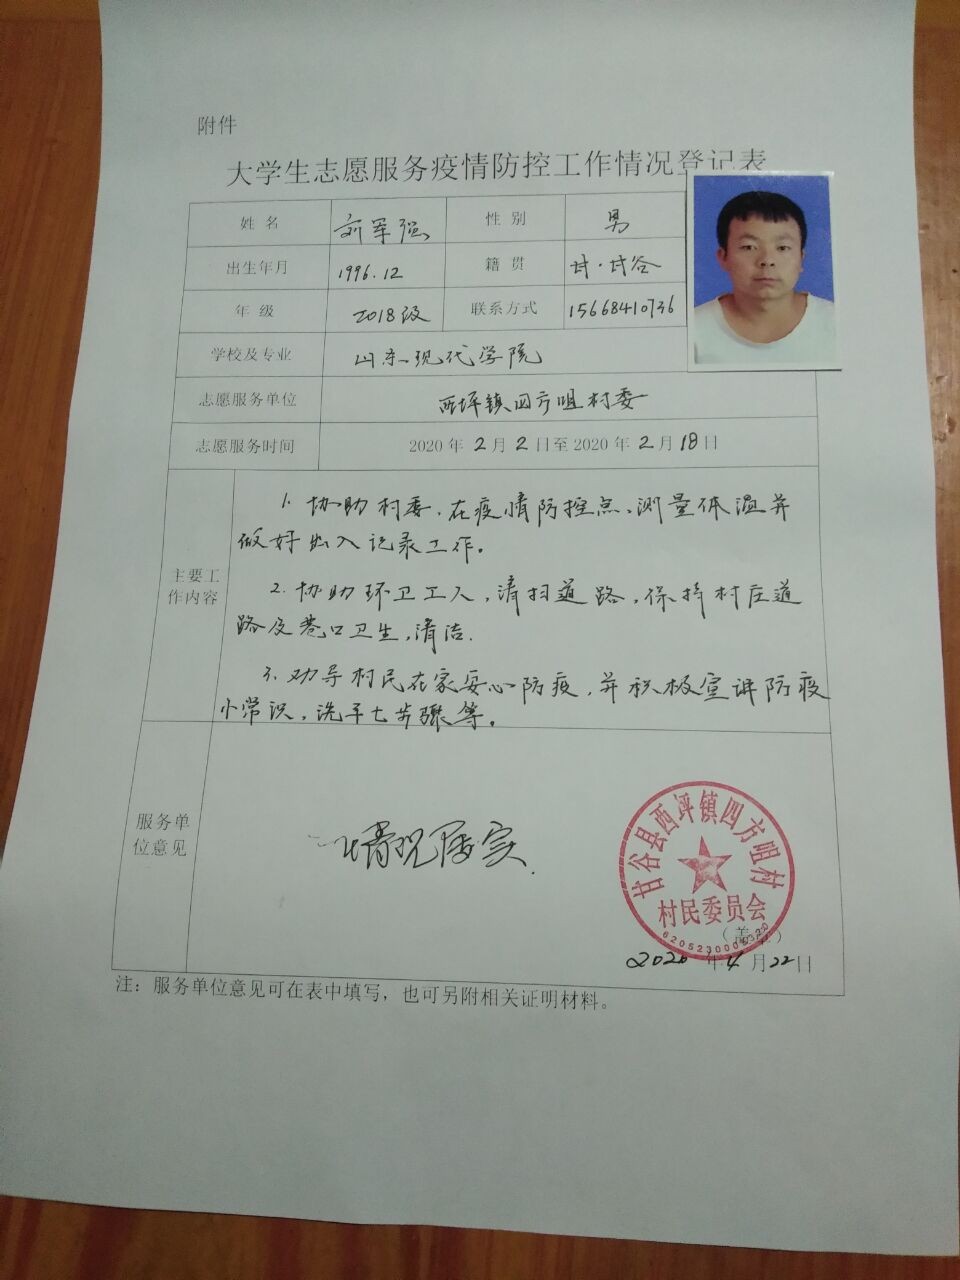 附件
大学生志愿服务疫情防控工作情况登记表
姓 名 刘军强 性 别 男
出生年月 1996.12 籍 贯 甘·甘谷
年 级 2018级 联系方式 15668410736
学校及专业 山东现代学院
志愿服务单位 西坪镇四方咀村委
志愿服务时间 2020 年 2 月 2 日至 2020 年 2 月 18 日
主要工
作内容
1. 协助村委，在疫情防控点，测量体温并
做好出入记录工作。
2. 协助环卫工人，清扫道路，保持村庄道
路及巷口卫生，清洁.
3. 劝导村民在家安心防疫，并积极宣讲防疫
小常识，洗手七步骤等。
服务单
位意见
情况属实.
甘谷县西坪镇四方咀村
村民委员会
（盖章）
2020 年 4 月 22 日
注：服务单位意见可在表中填写，也可另附相关证明材料。